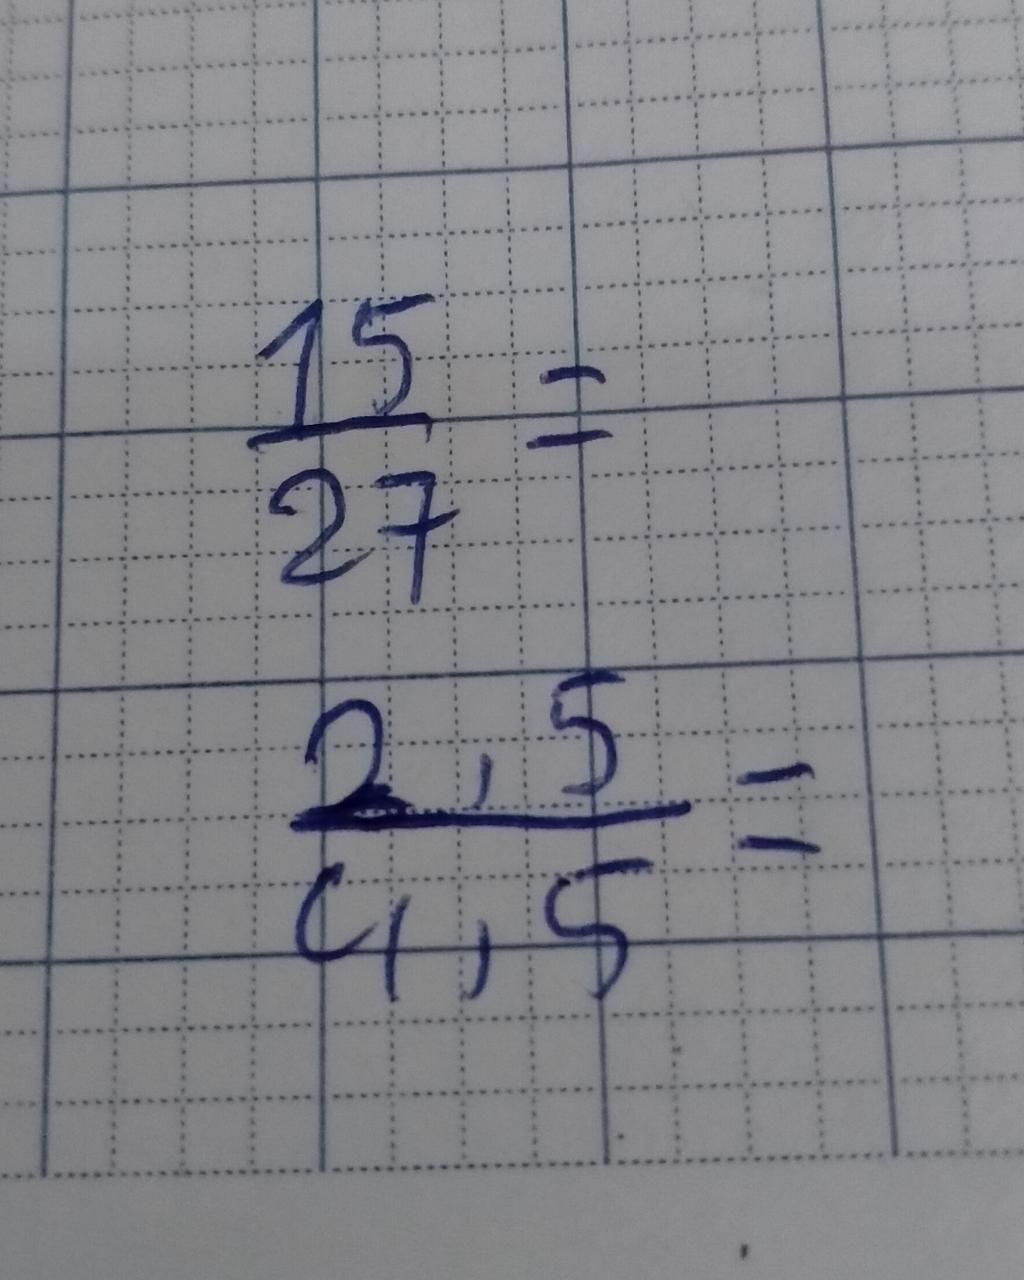 15/27 =
2,5/4,5 =